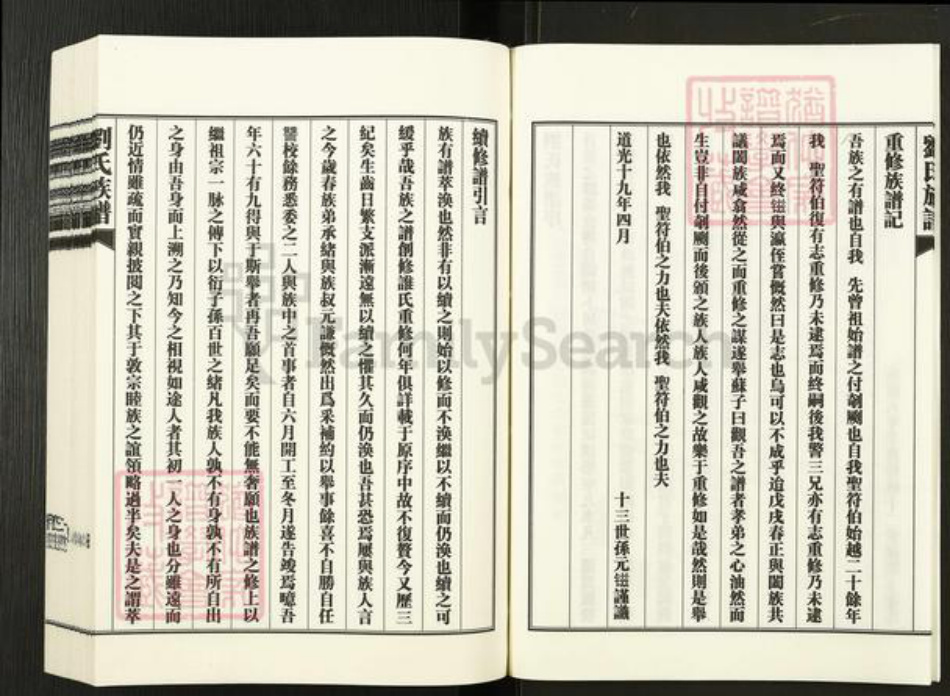 劉氏族譜
重修族譜記
吾族之有譜也自我 先曾祖始譜之付剞劂也自我聖符伯始越二十餘年
我 聖符伯復有志重修乃未逮焉而終嗣後我警三兄亦有志重修乃未逮
焉而又終鎡與瀛侄嘗慨然曰是志也烏可以不成乎迨戊戌春正與闔族共
議闔族咸翕然從之而重修之謀遂舉蘇子曰觀吾之譜者孝弟之心油然而
生豈非自付剞劂而後頒之族人族人咸觀之故樂于重修如是哉然則是舉
也依然我 聖符伯之力也夫依然我 聖符伯之力也夫
道光十九年四月 十三世孫元鎡謹識
續修譜引言
族有譜萃渙也然非有以續之則始以修而不渙繼以不續而仍渙也續之可
緩乎哉吾族之譜創修誰氏重修何年俱詳載于原序中故不復贅今又歷三
紀矣生齒日繁支派漸遠無以續之懼其久而仍渙也吾甚恐焉屢與族人言
之今歲春族弟承緒與族叔元謙慨然出爲采補約以舉事餘喜不自勝自任
督校餘務悉委之二人與族中之首事者自六月開工至冬月遂告竣焉噫吾
年六十有九得與于斯舉者再吾願足矣而要不能無奢願也族譜之修上以
繼祖宗一脉之傳下以衍子孫百世之緒凡我族人孰不有身孰不有所自出
之身由吾身而上溯之乃知今之相視如途人者其初一人之身也分雖遠而
仍近情雖疏而實親披閱之下其于敦宗睦族之誼領略過半矣夫是之謂萃
劉氏族譜
FamilySearch